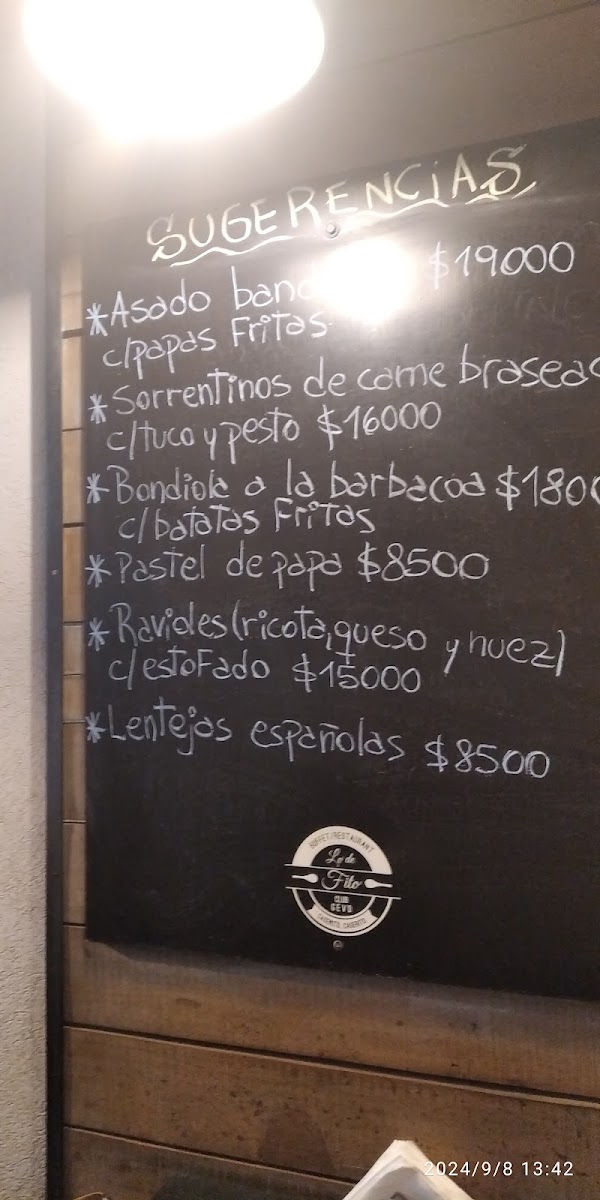 SUGERENCIAS
*Asado $19000
c/papas Fritas
*Sorrentinos de carne
c/tuco y pesto $16000
*Bondiola a la barbacoa
c/batatas Fritas
*Pastel de papa $8500
*Ravioles (ricota, queso y nuez)
c/estoFado $15000
*Lentejas españolas $8500
BUFFET/RESTAURANT
Lo de
Fito
CLUB
GEVP
2024/9/8 13:42